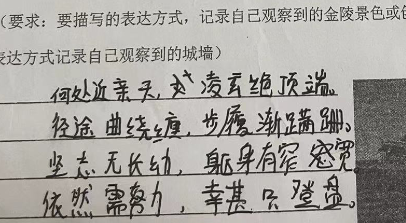 (要求：要描写的表达方式，记录自己观察到的金陵景色或
表达方式记录自己观察到的城墙)
何处近亲天，凌云绝顶端。
径途曲绕缠，步履渐蹒跚。
坚志无长幼，躯身有窄宽。
依然需努力，幸甚只登盘。